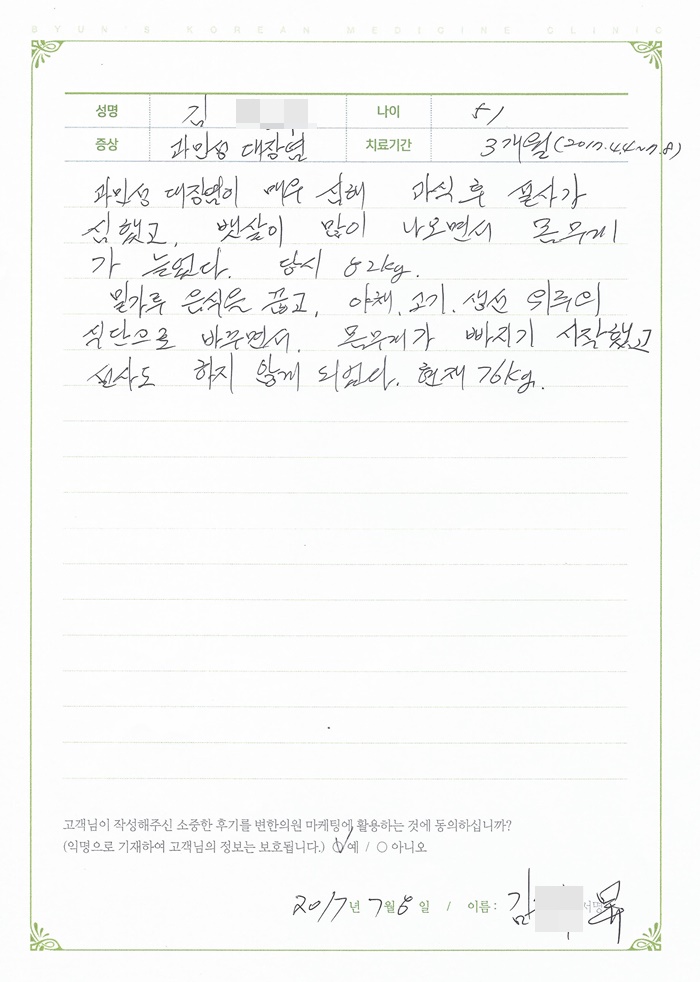 BYUN'S KOREAN MEDICINE CLINIC
성명 김 나이 51
증상 과민성 대장염 치료기간 3개월(2017.4.4~7.8)
과민성 대장염이 매우 심해 과식 후 설사가
심했고, 뱃살이 많이 나오면서 몸무게
가 늘었다. 당시 82kg.
밀가루 음식을 끊고, 야채, 고기, 생선 위주의
식단으로 바꾸면서, 몸무게가 빠지기 시작했고
설사도 하지 않게 되었다. 현재 76kg.
고객님이 작성해주신 소중한 후기를 변한의원 마케팅에 활용하는 것에 동의하십니까?
(익명으로 기재하여 고객님의 정보는 보호됩니다.) 예 / 아니오
2017년 7월 8일 / 이름: 김